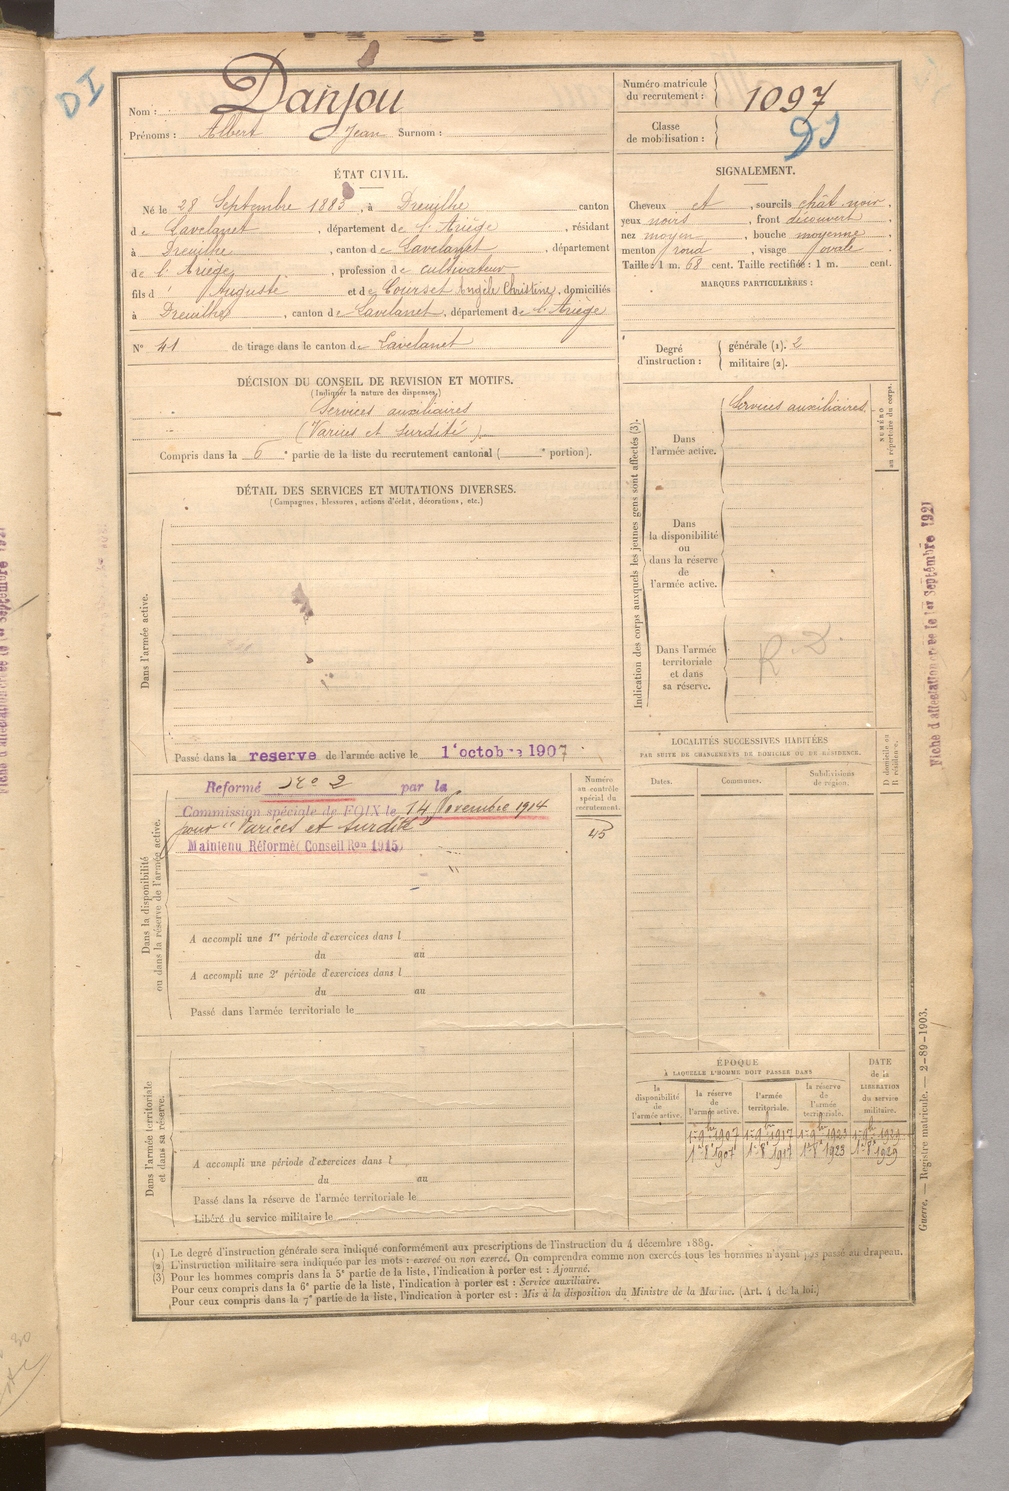 DI
Nom : Danjou
Prénoms : Albert Jean Surnom :
Numéro matricule du recrutement : 1097
Classe de mobilisation :
ÉTAT CIVIL.
Né le 28 Septembre 1883, à Dreuilhe canton
de Lavelanet, département de l'Ariège, résidant
à Dreuilhe, canton de Lavelanet, département
de l'Ariège, profession de cultivateur
fils d' Auguste et de Courset Angèle Christine, domiciliés
à Dreuilhe, canton de Lavelanet, département de l'Ariège
N° 41 de tirage dans le canton de Lavelanet
SIGNALEMENT.
Cheveux et, sourcils chât noir,
yeux noirs, front découvert,
nez moyen, bouche moyenne,
menton rond, visage ovale.
Taille : 1 m. 68 cent. Taille rectifiée : 1 m. cent.
MARQUES PARTICULIÈRES :
Degré d'instruction :
générale (1). 2
militaire (2).
DÉCISION DU CONSEIL DE REVISION ET MOTIFS.
(Indiquer la nature des dispenses.)
Services auxiliaires
(Varices et surdité)
Compris dans la 6e partie de la liste du recrutement cantonal ( e portion).
DÉTAIL DES SERVICES ET MUTATIONS DIVERSES.
(Campagnes, blessures, actions d'éclat, décorations, etc.)
Dans l'armée active.
Passé dans la reserve de l'armée active le 1 octobre 1907
Indication des corps auxquels les jeunes gens sont affectés (3).
Dans l'armée active.
Services auxiliaires.
NUMÉRO au répertoire du corps.
Dans la disponibilité ou dans la réserve de l'armée active.
Dans l'armée territoriale et dans sa réserve.
R. D.
Dans la disponibilité ou dans la réserve de l'armée active.
Reformé No 2 par la
Commission spéciale de FOIX le 14 Novembre 1914
pour "Varices et surdité"
Maintenu Réformé (Conseil Ron 1915)
Numéro au contrôle spécial du recrutement.
45
A accompli une 1re période d'exercices dans l
du au
A accompli une 2e période d'exercices dans l
du au
Passé dans l'armée territoriale le
LOCALITÉS SUCCESSIVES HABITÉES
PAR SUITE DE CHANGEMENTS DE DOMICILE OU DE RÉSIDENCE.
Dates.
Communes.
Subdivisions de région.
D domicile ou R résidence.
Dans l'armée territoriale et dans sa réserve.
A accompli une période d'exercices dans l
du au
Passé dans la réserve de l'armée territoriale le
Libéré du service militaire le
ÉPOQUE
À LAQUELLE L'HOMME DOIT PASSER DANS
la disponibilité de l'armée active.
la réserve de l'armée active.
l'armée territoriale.
la réserve de l'armée territoriale.
DATE de la LIBÉRATION du service militaire.
1er 9bre 1907 1er 9bre 1917 1er 9bre 1923 1er 9bre 1929
1er 8bre 1907 1er 8bre 1917 1er 8bre 1923 1er 8bre 1929
(1) Le degré d'instruction générale sera indiqué conformément aux prescriptions de l'instruction du 4 décembre 1889.
(2) L'instruction militaire sera indiquée par les mots : exercé ou non exercé. On comprendra comme non exercés tous les hommes n'ayant pas passé au drapeau.
(3) Pour les hommes compris dans la 5e partie de la liste, l'indication à porter est : Ajourné.
Pour ceux compris dans la 6e partie de la liste, l'indication à porter est : Service auxiliaire.
Pour ceux compris dans la 7e partie de la liste, l'indication à porter est : Mis à la disposition du Ministre de la Marine. (Art. 4 de la loi.)
Guerre. — Registre matricule. — 2-89-1903.
Fiche d'affectation créée le 1er Septembre 1921